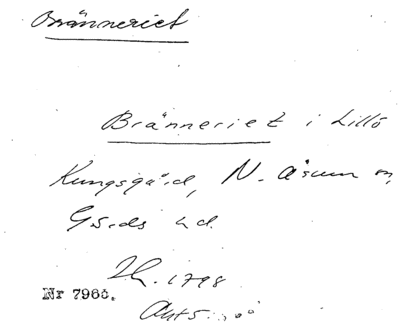 Bränneriet
Bränneriet i Lillö
Kungsgård, N. Åsum sn,
Gärds hd.
1798
Nr 7960.